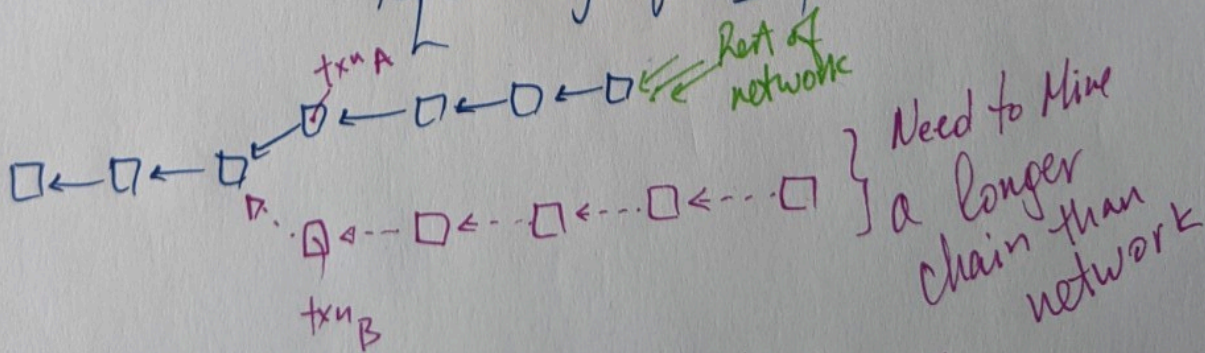 txn A
Rest of
network
Need to Mine
a longer
chain than
network
txn B